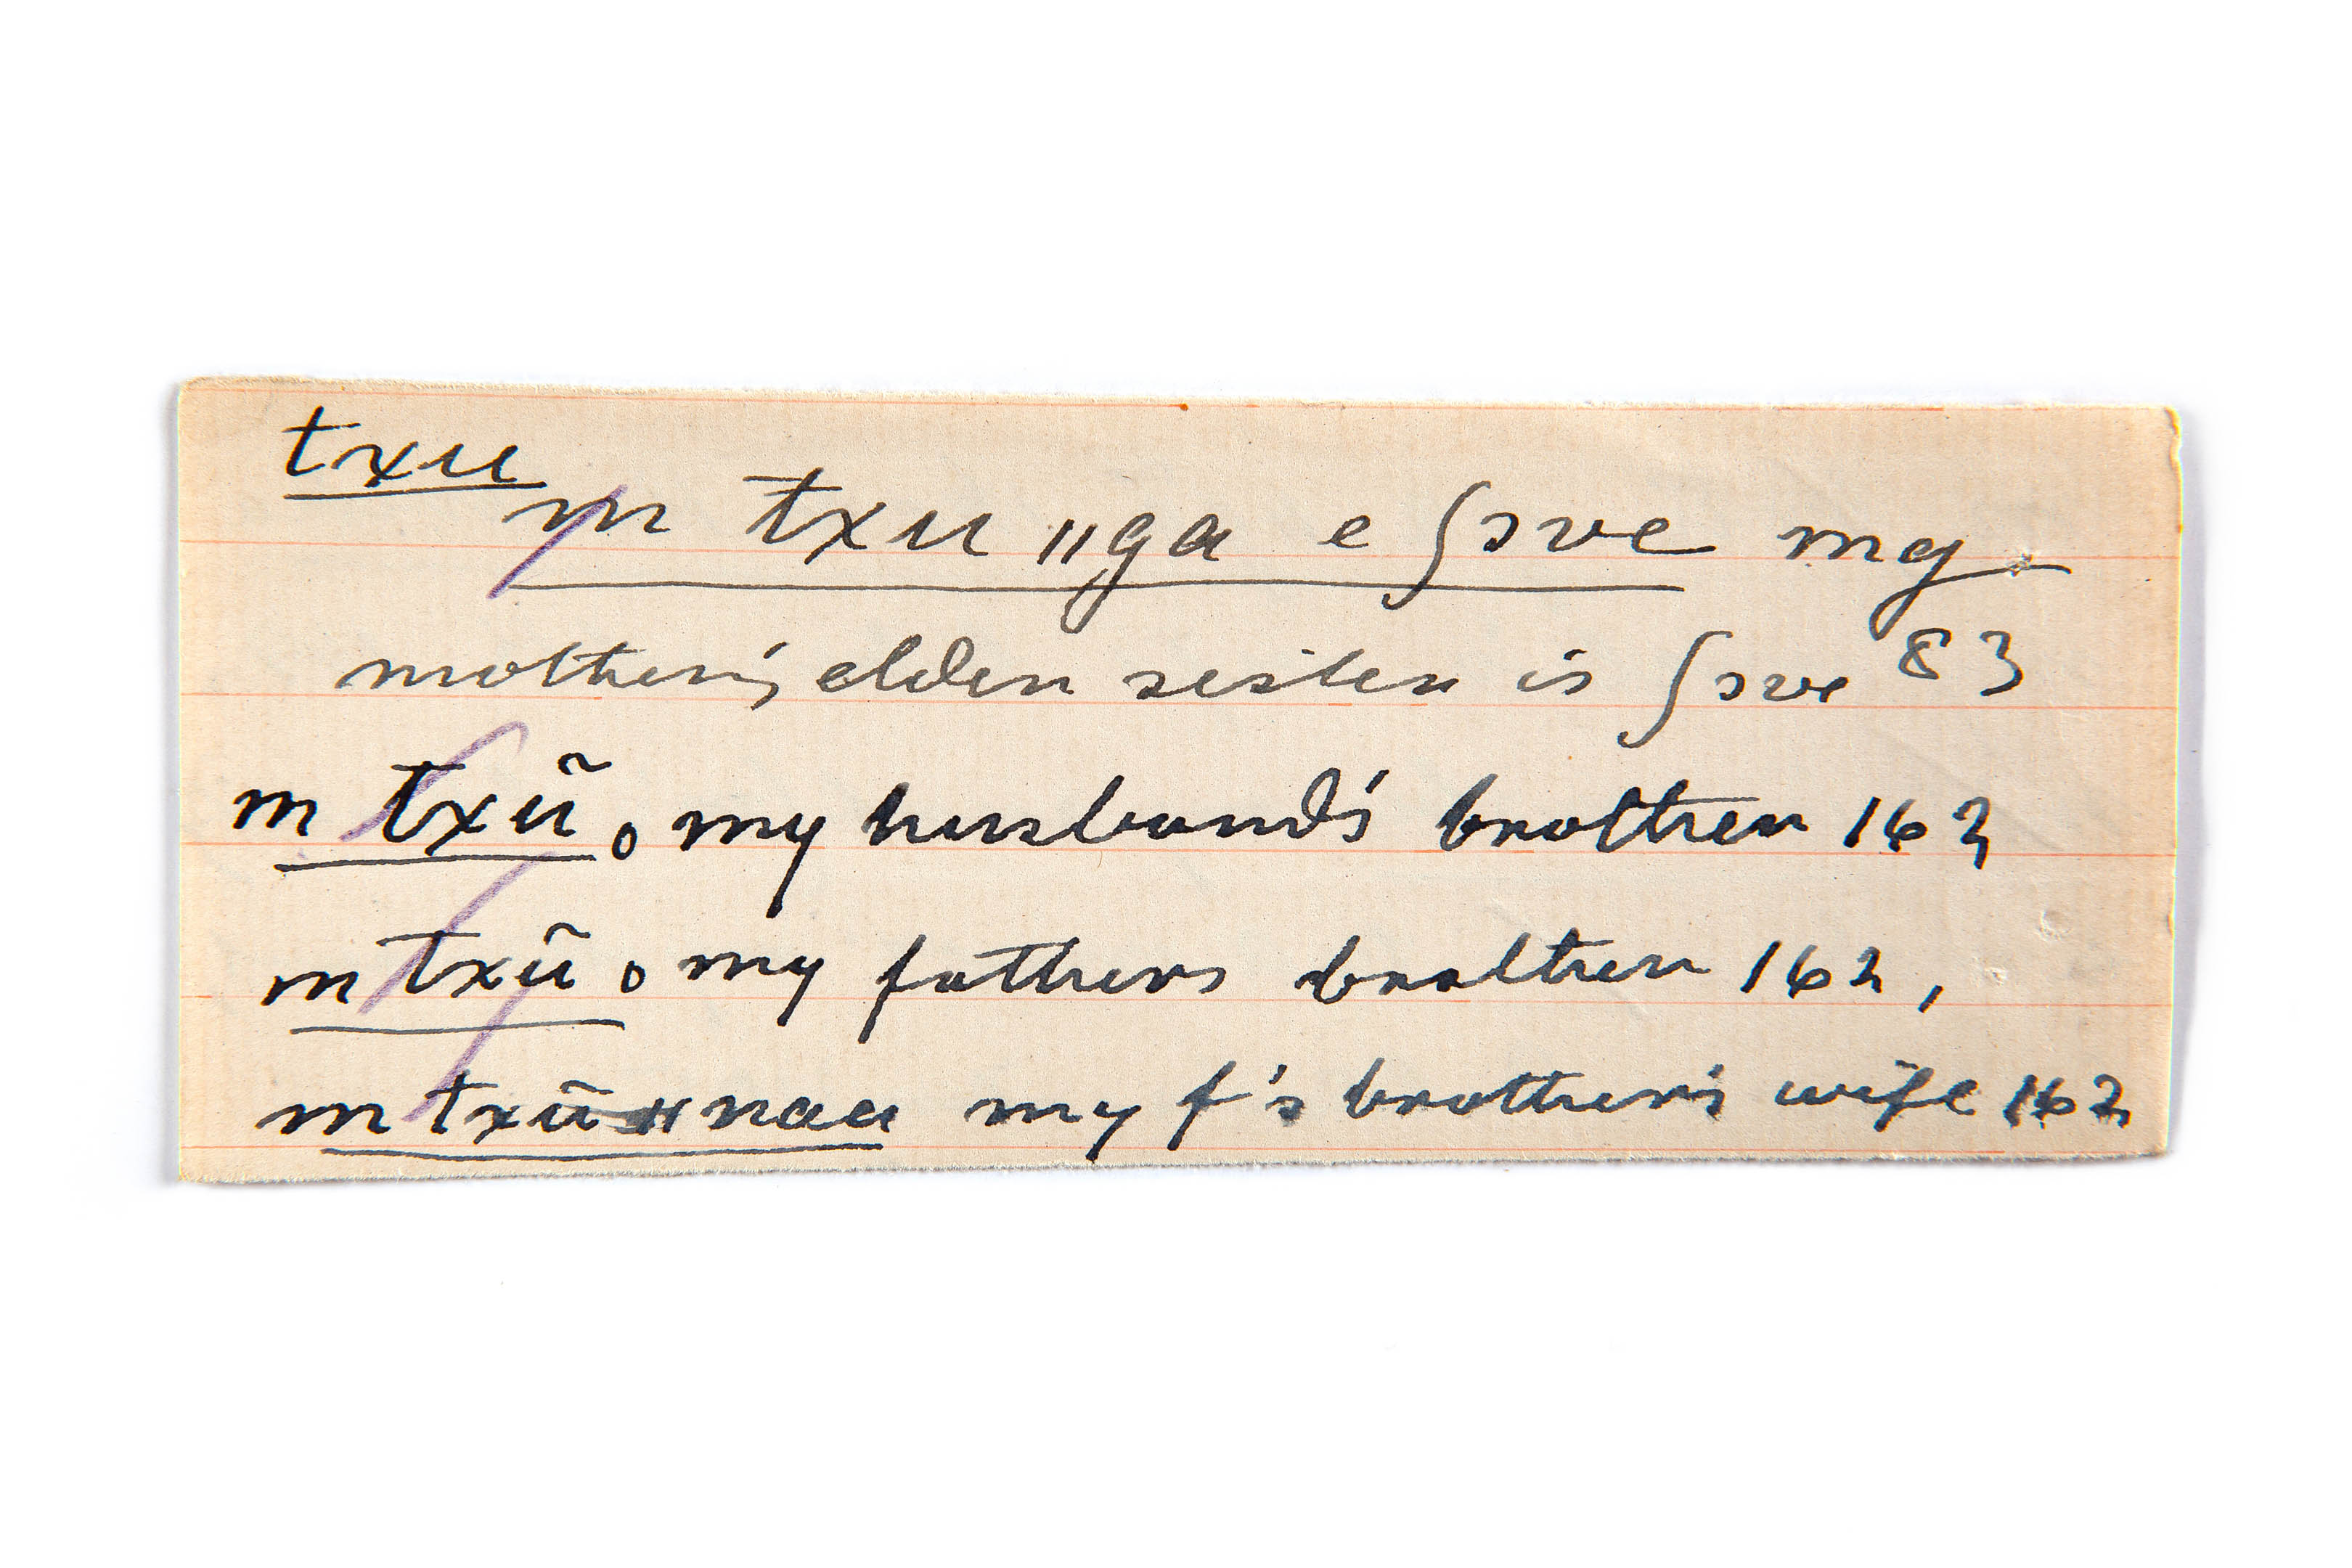 txu
m txu ‖ga e ʃɔve my
mother's elder sister is ʃɔve 83
m txũ, o my husband's brother 162
m txũ o my fathers brother 162,
m txũ ‖naa my f's brother's wife 162